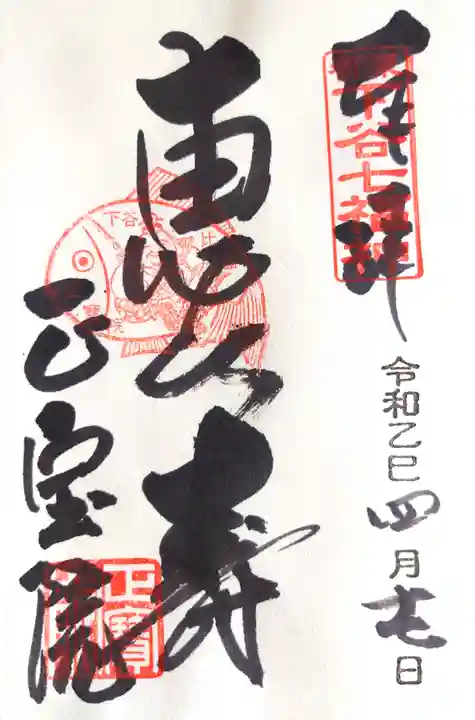 奉拝
下谷七福神
令和乙巳四月十七日
恵比寿
下谷
比
正宝院
正寶